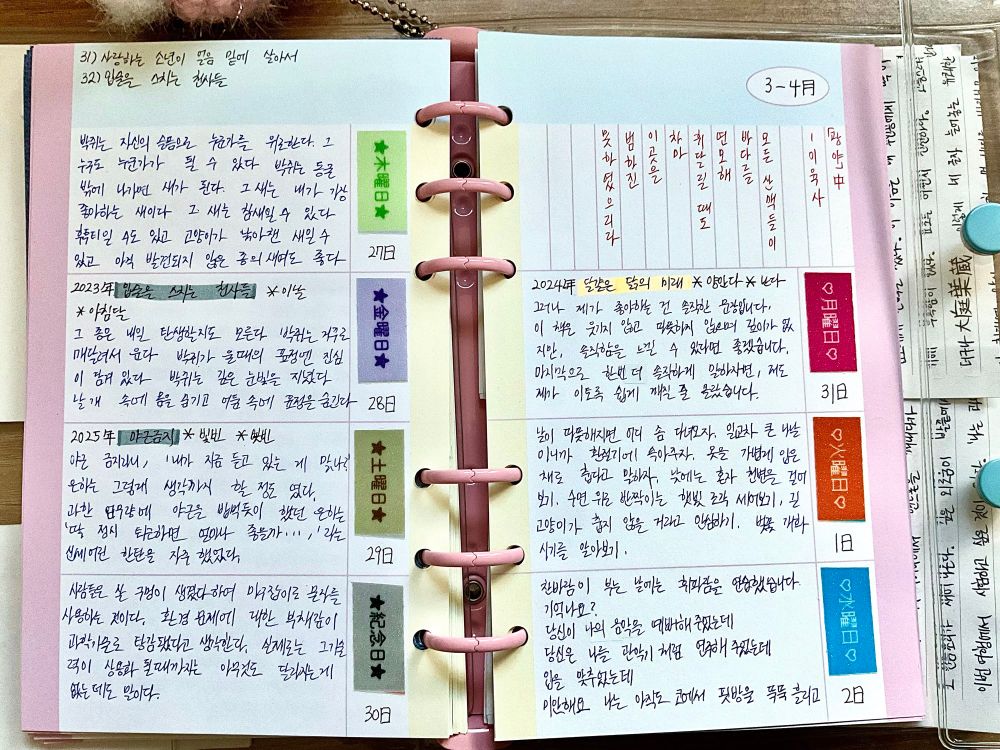 31) 사랑하는 소년이 얼음 밑에 살아서
32) 입술을 스치는 천사들
박쥐는 자신의 울음으로 누군가를 위로한다. 그
누구도 누군가가 될 수 있다 박쥐는 동굴
밖에 나가면 새가 된다. 그 새는 내가 가장
좋아하는 새이다 그 새는 참새일 수 있다
일 수도 있고 고양이가 낚아챈 새일 수
있고 아직 발견되지 않은 종의 새여도 좋다
★木曜日★
27日
2023年 입술을 스치는 천사들 *이날
*아침달
그 종은 내일 탄생할지도 모른다 박쥐는 거꾸로
매달려서 운다 박쥐가 울 때의 표정엔 진심
이 담겨 있다 박쥐는 깊은 눈빛을 지녔다
날개 속에 몸을 숨기고 어둠 속에 표정을 숨긴다
★金曜日★
28日
2025年 야근금지
야근 금지라니, '내가 지금 듣고 있는 게 맞나?'
은하는 그렇게 생각까지 할 정도 였다.
과한 업무량에 야근을 밥먹듯이 했던 은하는
'딱 정시 퇴근하면 얼마나 좋을까...,'라는
신세어린 한탄을 자주 했었다.
★土曜日★
29日
사람들은 쓸 구멍이 생겼다하여 마구잡이로 문사를
사용하는 것이다. 환경 문제에 대한 부채감이
과학기술로 탕감됐다고 생각한다. 실제로는 그 기술
력이 상용화 될 때까지는 아무것도 달라지는게
없는데도 말이다.
★紀念日★
30日
3-4月
「광야」中
- 이육사
모든 산맥들이
바다를
연모해
휘달릴 때도
차마
이곳을
범하진
못하였으리라
2024年 달걀은 닭의 미래 *양안다 *난다
그러나 제가 좋아하는 건 솔직한 문장입니다.
이 책은 웃기지 않고 따뜻하지 않으며 깊이가 없
지만, 솔직함을 느낄 수 있다면 좋겠습니다.
마지막으로 한번 더 솔직하게 말하자면, 저도
제가 이토록 쉽게 깨질 줄 몰랐습니다.
♡月曜日♡
31日
날이 따뜻해지면 어디 좀 다녀오자. 일교차 큰 나날
이니까 환절기에 속아주자. 옷을 가볍게 입은
채로 춥다고 말하자. 낮에는 혼자 천변을 걸어
보기. 수면 위로 반짝이는 햇빛 조각 세어보기, 길
고양이가 춥지 않을 거라고 안심하기. 벚꽃 개화
시기를 알아보기.
♡火曜日♡
1日
찬바람이 부는 날에는 휘파람을 연습했습니다
기억나요?
당신이 나의 음악을 예뻐해 주었는데
당신은 나를 관악기처럼 연주해 주었는데
입을 맞추었는데
미안해요 나는 아직도 코에서 핏방울 뚝뚝 흘리고
♡水曜日♡
2日
大庭葉蔵